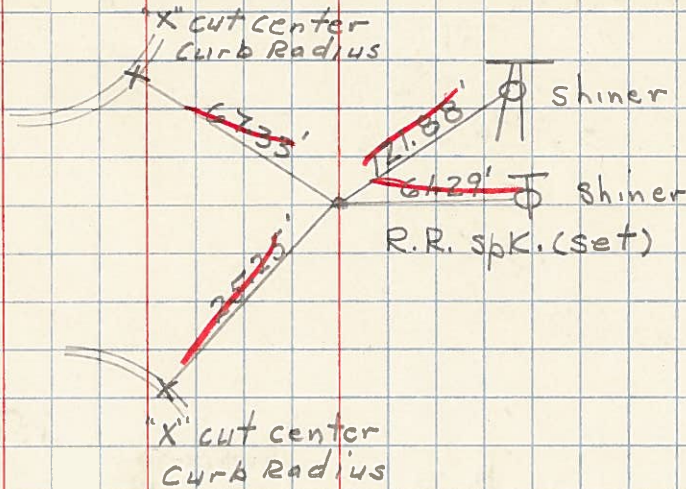 "X" cut center
Curb Radius
67.33'
121.88'
shiner
shiner
R.R. spk. (set)
"X" cut center
Curb Radius